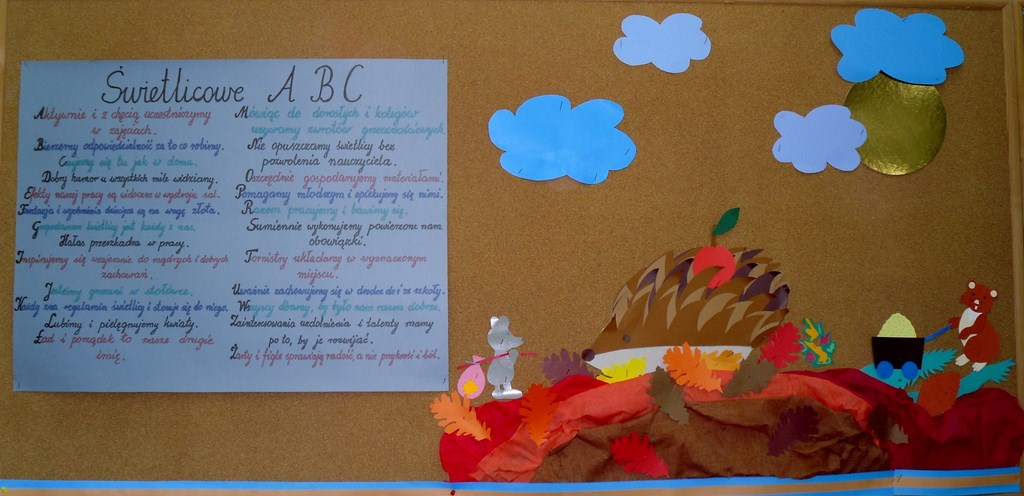 Świetlicowe A B C
Aktywnie i z chęcią uczestniczymy
w zajęciach.
Bierzemy odpowiedzialność za to co robimy.
Czujemy się tu jak w domu.
Dobry humor u wszystkich mile widziany.
Efekty naszej pracy są widoczne w wystroju sal.
Fantazja i wyobraźnia dziecięca są na wagę złota.
Gospodarzem świetlicy jest każdy z nas.
Hałas przeszkadza w pracy.
Inspirujemy się wzajemnie do mądrych i dobrych
zachowań.
Jesteśmy grzeczni w stołówce.
Każdy zna regulamin świetlicy i stosuje się do niego.
Lubimy i pielęgnujemy kwiaty.
Ład i porządek to nasze drugie
imię.
Mówiąc do dorosłych i kolegów
używamy zwrotów grzecznościowych.
Nie opuszczamy świetlicy bez
pozwolenia nauczyciela.
Oszczędnie gospodarujemy materiałami.
Pomagamy młodszym i opiekujemy się nimi.
Razem pracujemy i bawimy się.
Sumiennie wykonujemy powierzone nam
obowiązki.
Tornistry układamy w wyznaczonym
miejscu.
Uważnie zachowujemy się w drodze do i ze szkoły.
Wszyscy dbamy, by było nam razem dobrze.
Zainteresowania uzdolnienia i talenty mamy
po to, by je rozwijać.
Żarty i figle sprawiają radość, a nie przykrość i ból.